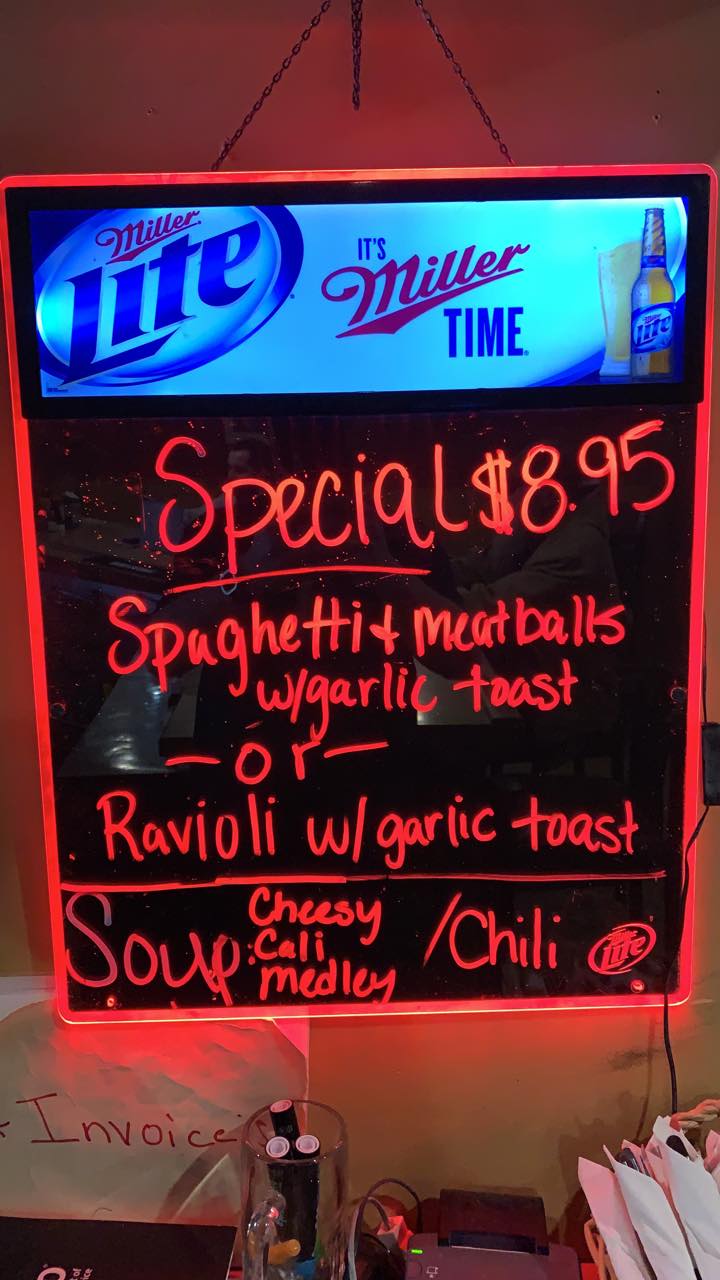 Miller
Lite
IT'S
Miller
TIME
Lite
Special $8.95
Spaghetti & meatballs
w/garlic toast
-or-
Ravioli w/ garlic toast
Soup: Cheesy
Cali
medley
/Chili
Lite
* Invoice's